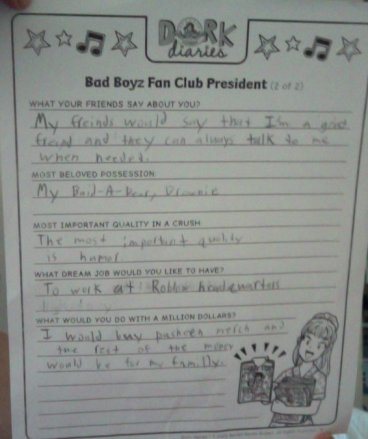 DORK
diaries
Bad Boyz Fan Club President (2 of 2)
WHAT YOUR FRIENDS SAY ABOUT YOU?
My freinds would say that I'm a good
freind and they can always talk to me
when needed.
MOST BELOVED POSSESSION
My Build-A-Bear, Brownie
MOST IMPORTANT QUALITY IN A CRUSH
The most important quality
is humor
WHAT DREAM JOB WOULD YOU LIKE TO HAVE?
To work at Roblox headquarters
WHAT WOULD YOU DO WITH A MILLION DOLLARS?
I would buy pusheen merch and
the rest of the money
would be for my family.